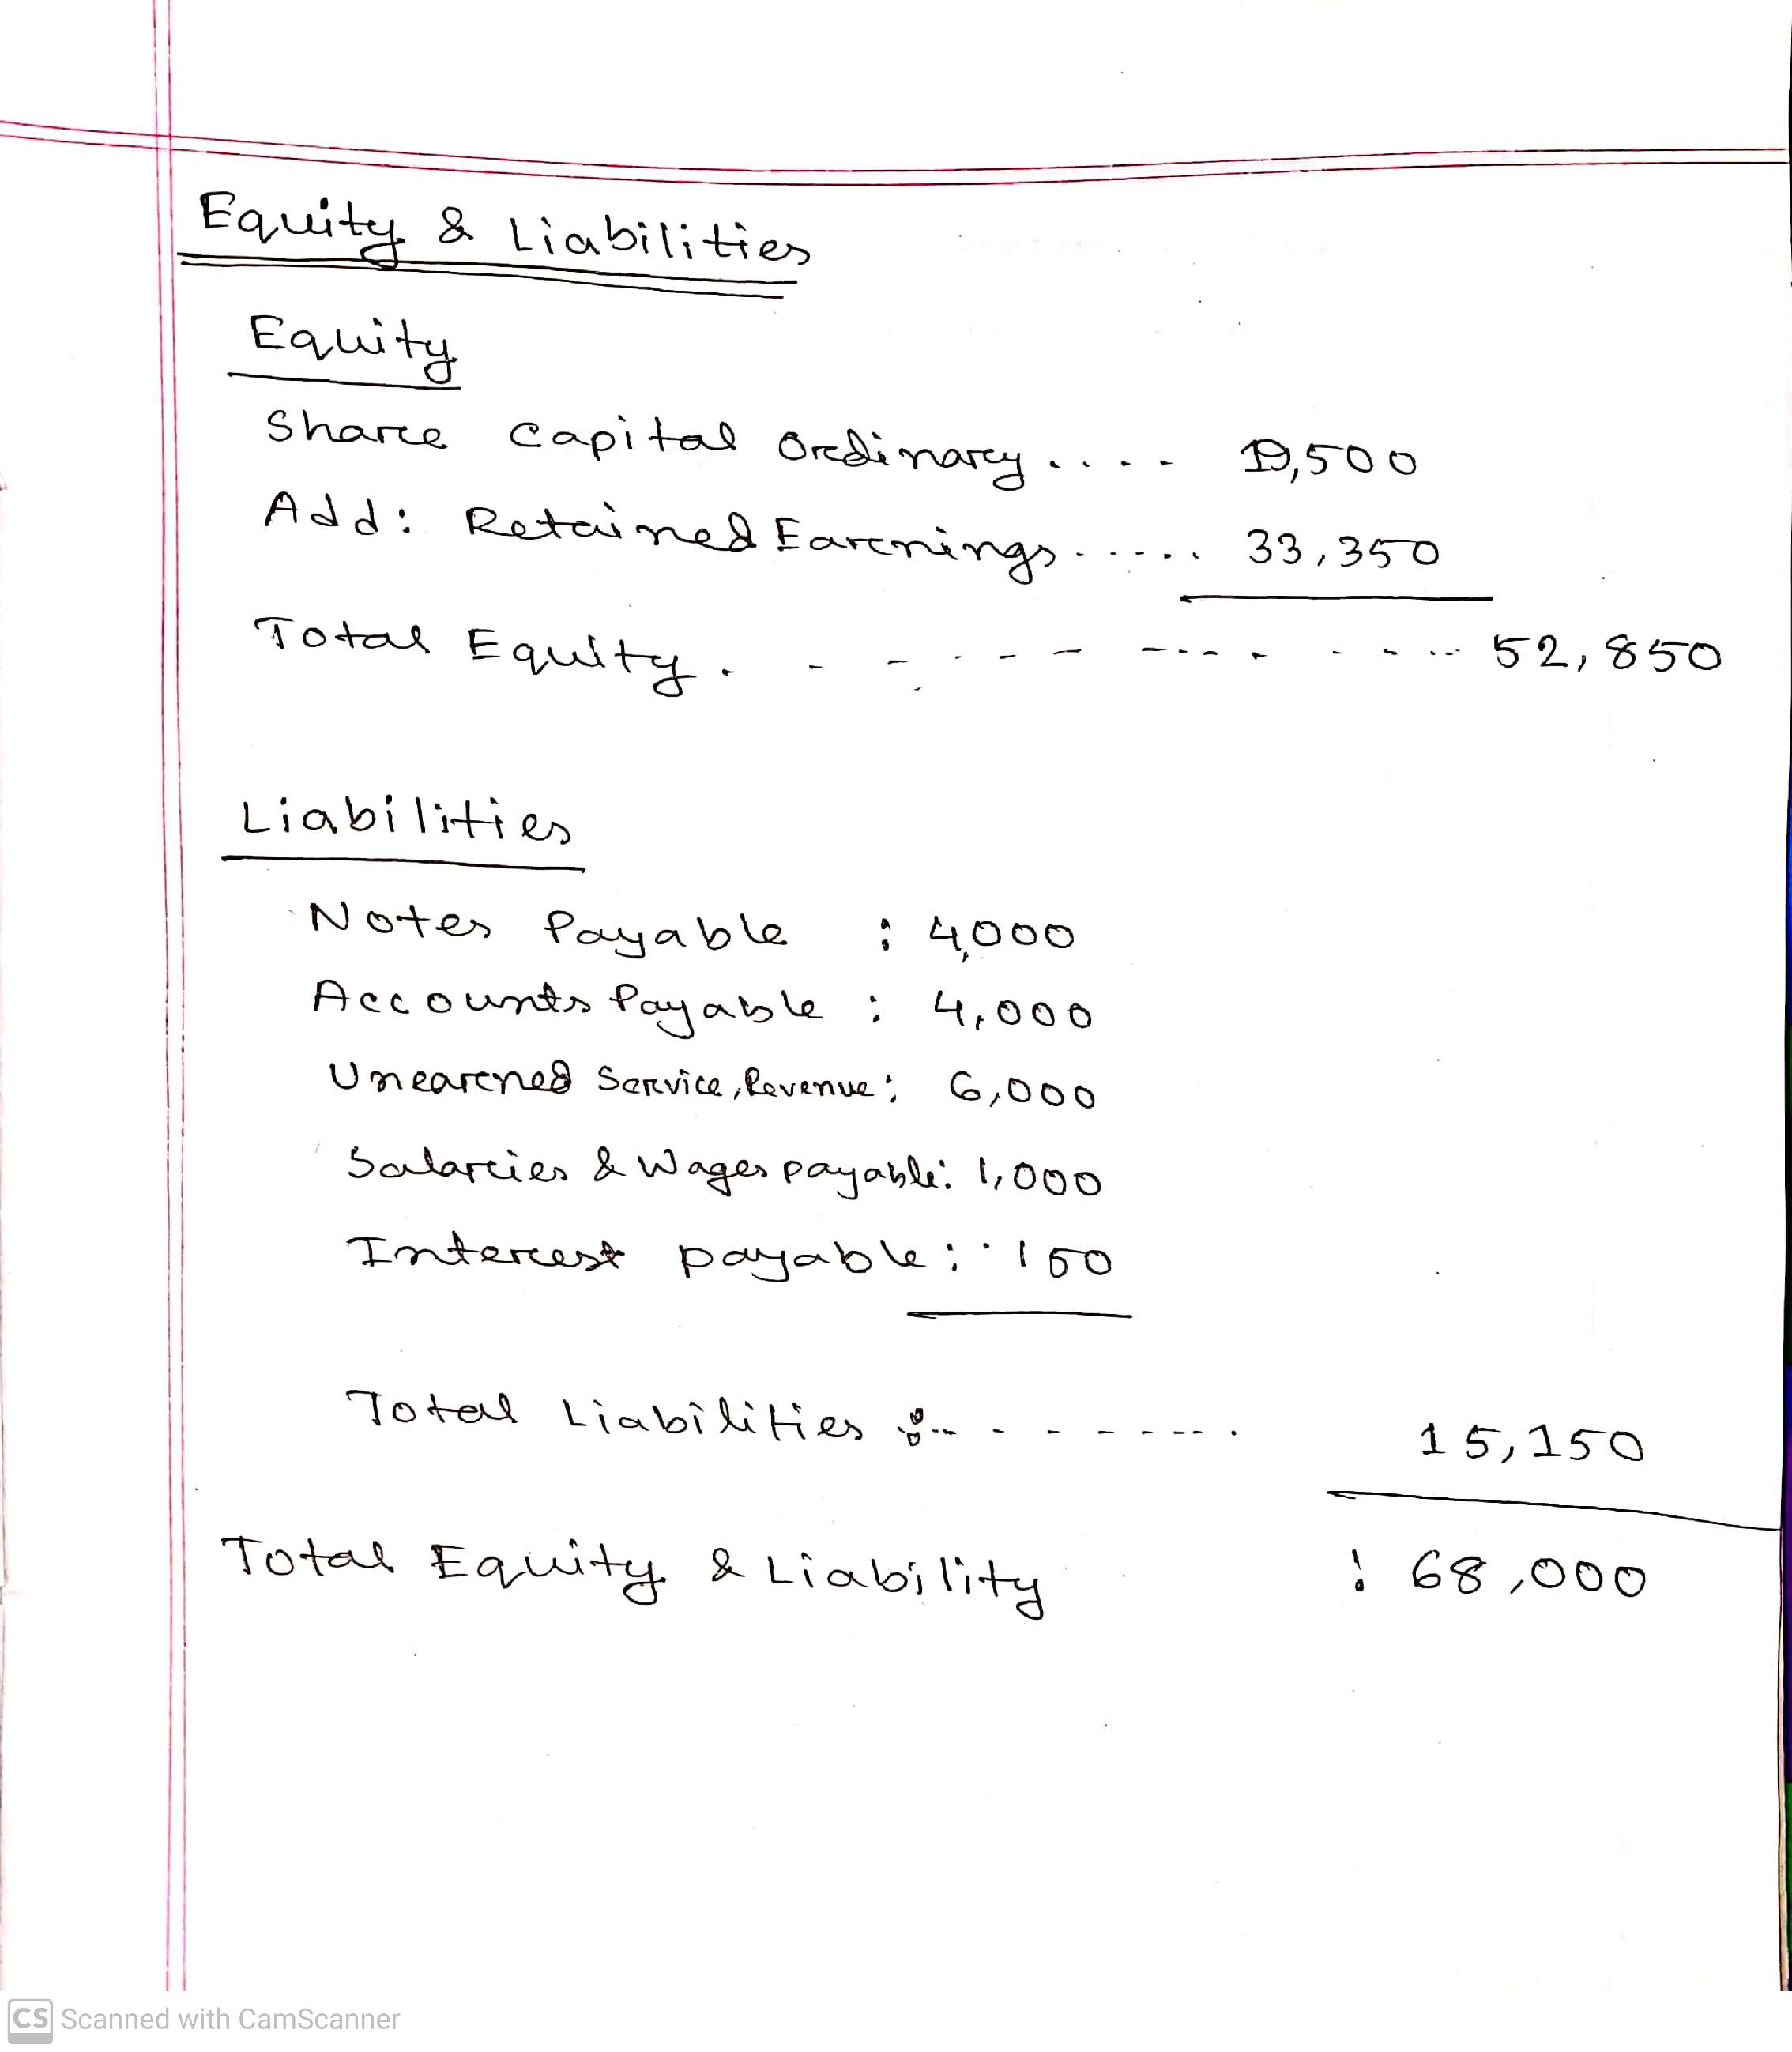 Equity & Liabilities
Equity
Share Capital Ordinary .... 19,500
Add: Retained Earnings ..... 33,350
Total Equity. - - - - - - - - - - - - - ... 52,850
Liabilities
Notes Payable : 4,000
Accounts Payable : 4,000
Unearned Service, Revenue: 6,000
Salaries & Wages payable: 1,000
Interest payable: 150
Total Liabilities :.. - - - - - - - . 15,150
Total Equity & Liability : 68,000
CS Scanned with CamScanner